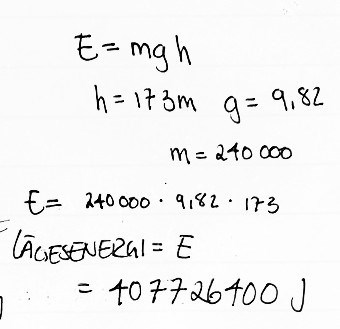 E = mgh
h = 173m g = 9,82
m = 240 000
E = 240 000 · 9,82 · 173
LÄGESENERGI = E
= 407726400 J